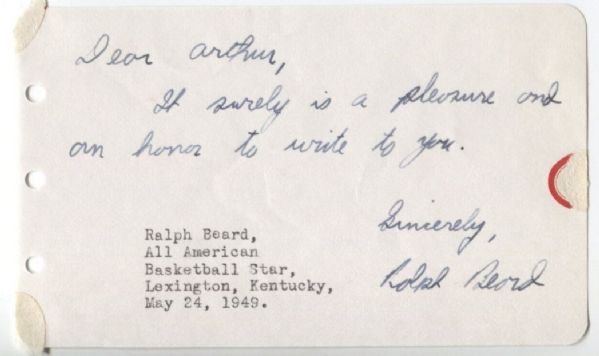 Dear Arthur,
It surely is a pleasure and
an honor to write to you.
Sincerely,
Ralph Beard
Ralph Beard,
All American
Basketball Star,
Lexington, Kentucky,
May 24, 1949.